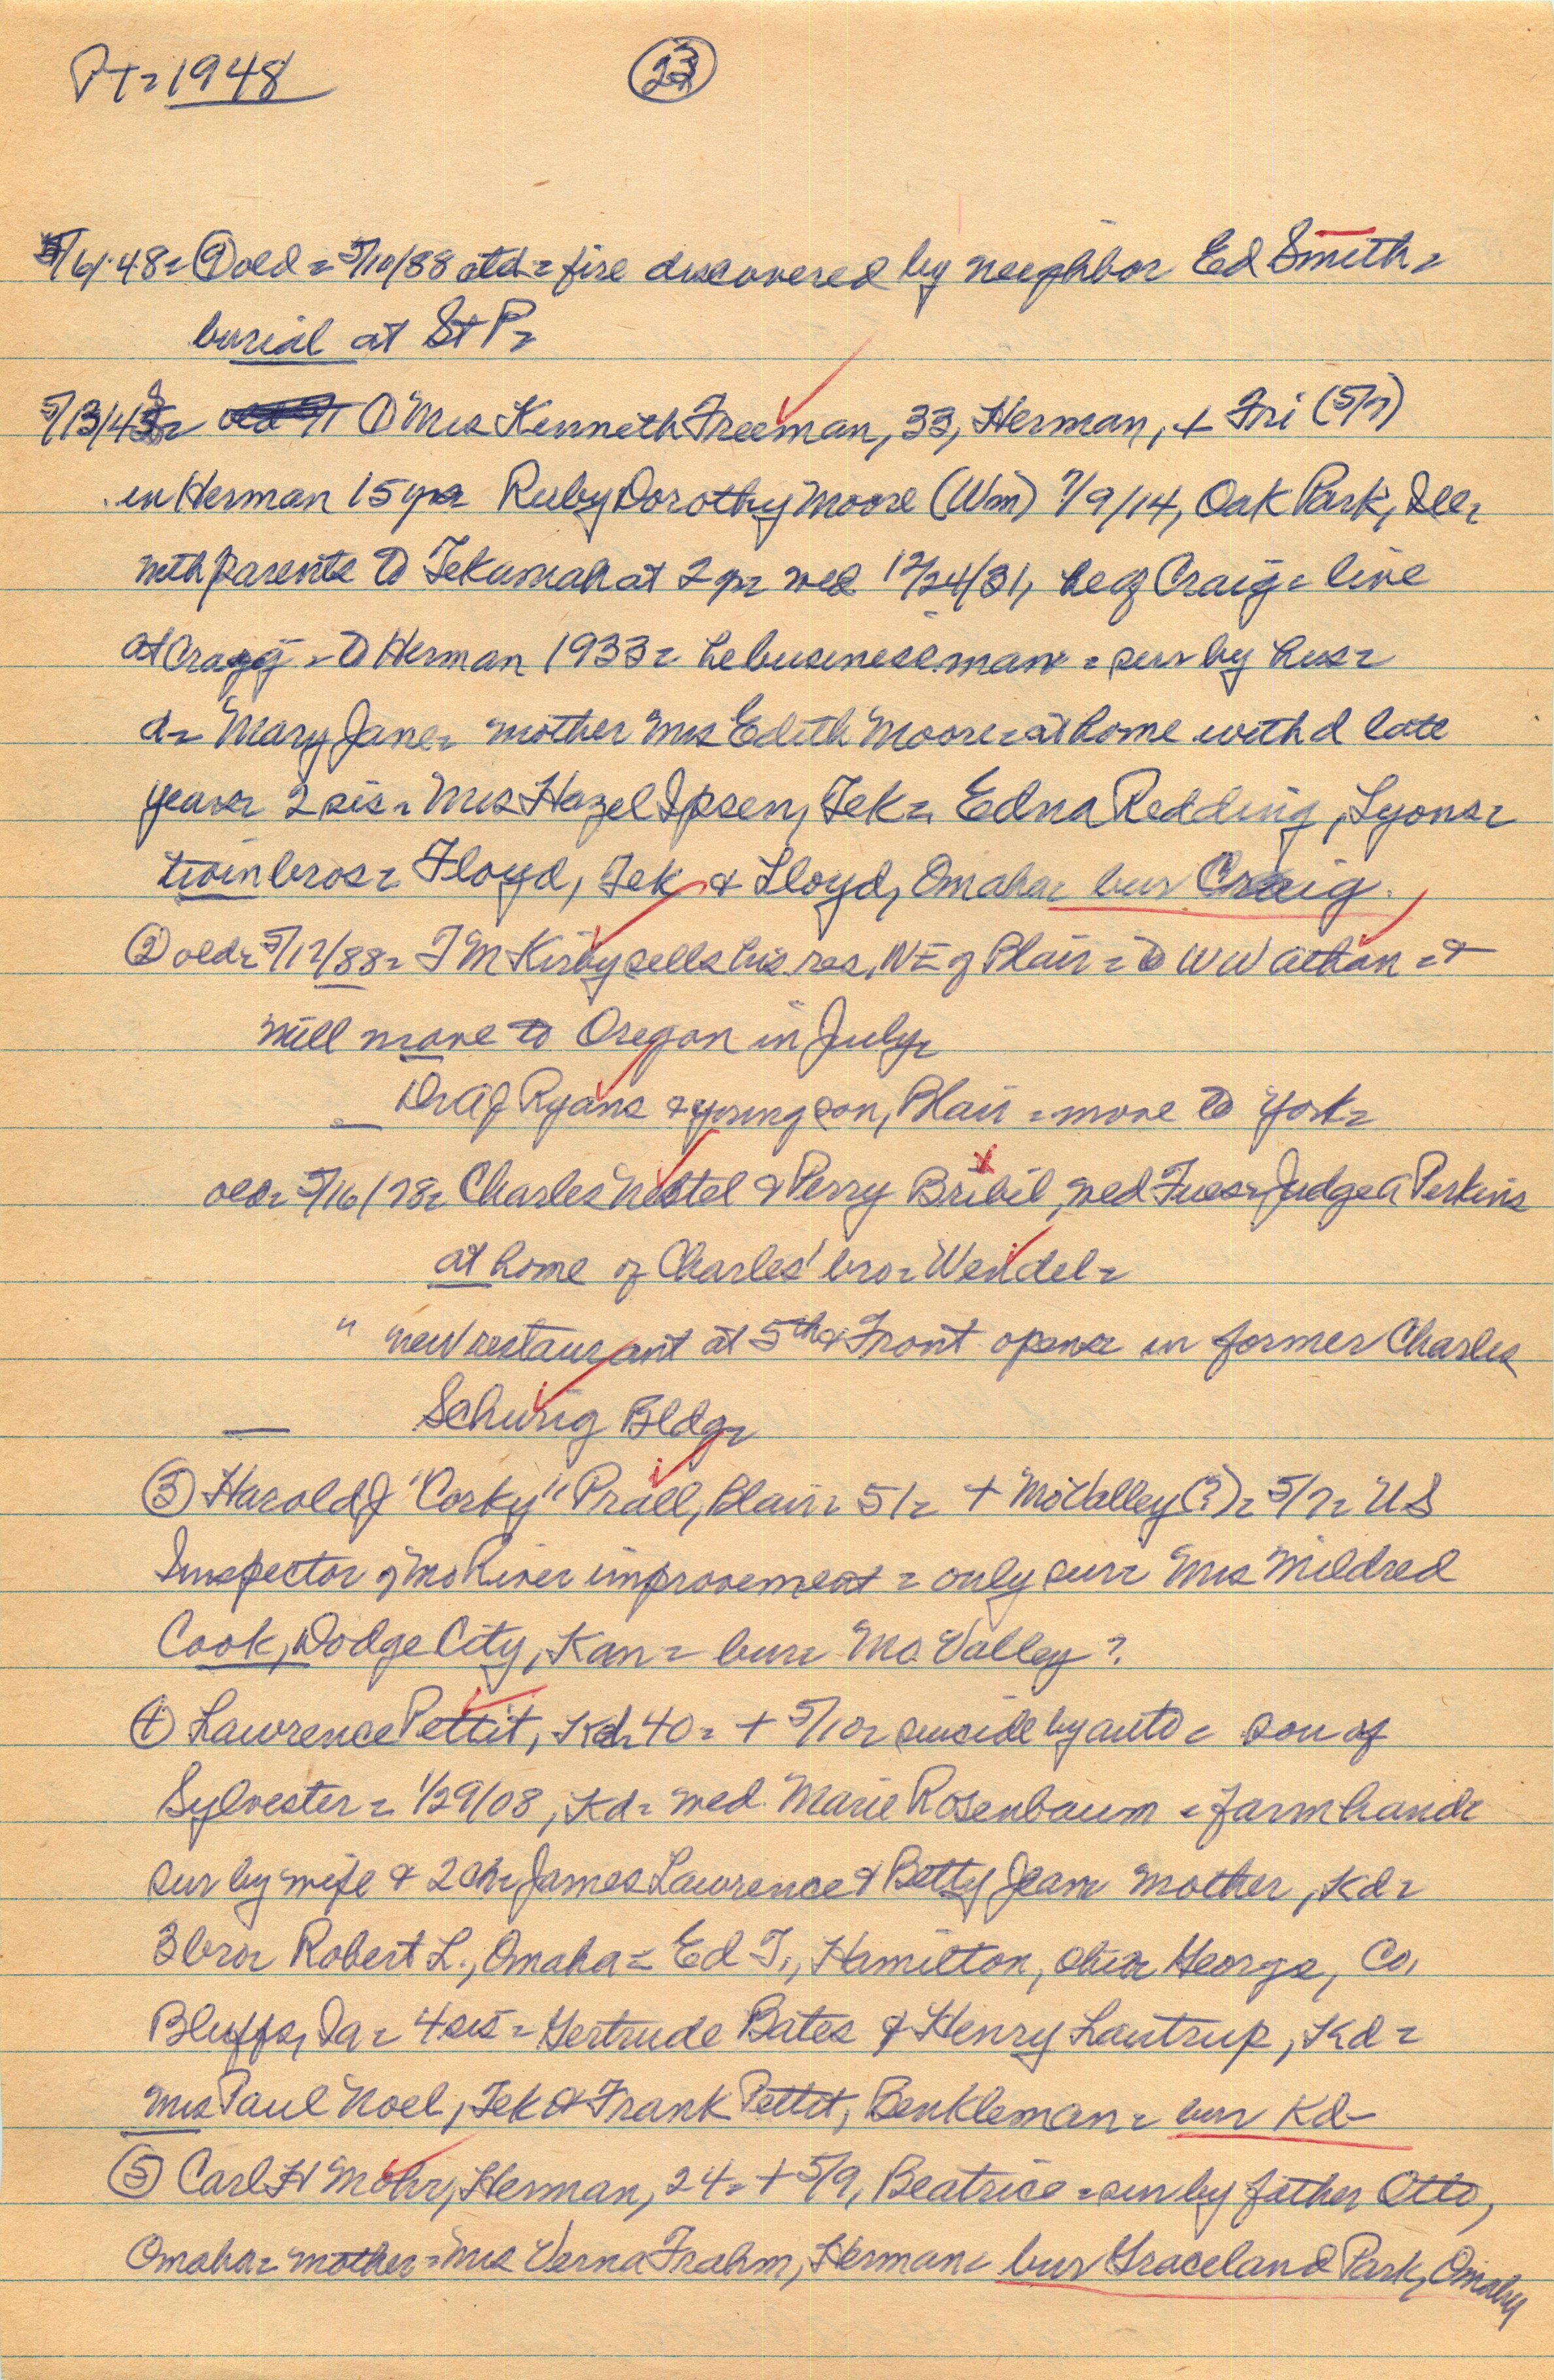 PT = 1948
23
5/6/48 = ⑨ old = 5/10/88 = fire discovered by neighbor Ed Smith =
burial at St P =
5/13/48 = ① Mrs Kenneth Freeman, 33, Herman, + Fri (5/7)
in Herman 15 yrs Ruby Dorothy Moore (Wm) 7/9/14, Oak Park, Ill =
with parents to Tekamah at 2 yr = wed 12/24/31, he of Craig = live
at Craig = to Herman 1933 = he businessman = sur by hus =
d = Mary Jane = mother Mrs Edith Moore = at home with d late
years = 2 sis = Mrs Hazel Ipsen, Tek = Edna Redding, Lyons =
twin bros = Floyd, Tek & Lloyd, Omaha = bur Craig.
② old = 5/17/88 = J M Kirby sells his res, NE of Blair = to W W = &
will move to Oregon in July =
Dr A J Ryans & young son, Blair = move to York =
old = 5/16/78 = Charles & Perry Bribil, wed Tues = Judge A Perkins
at home of Charles' bro = Wendel =
" new restaurant at 5th & Front opens in former Charles
Schurig Bldg =
③ Harold J "Corky" Prall, Blair = 51 = + Mo Valley (?) = 5/7 = US
Inspector of Mo River improvement = only sur = Mrs Mildred
Cook, Dodge City, Kan = bur = Mo. Valley ?
④ Lawrence Pettit, Kd = 40 = + 5/10 = suicide by auto = son of
Sylvester = 1/29/08, Kd = wed Marie Rosenbaum = farmhand =
sur by wife & 2 ch = James Lawrence & Betty Jean = mother, Kd =
3 bro = Robert L., Omaha = Ed T., Hamilton, George, Co.
Bluffs, Ia = 4 sis = Gertrude Bates & Henry Lautrup, Kd =
Mrs Paul Noel, Tek & Frank Pettit, Benkleman = bur Kd -
⑤ Carl H Mohr, Herman, 24 = + 5/9, Beatrice = sur by father Otto,
Omaha = mother = Mrs Verna Frahm, Herman = bur Graceland Park, Omaha